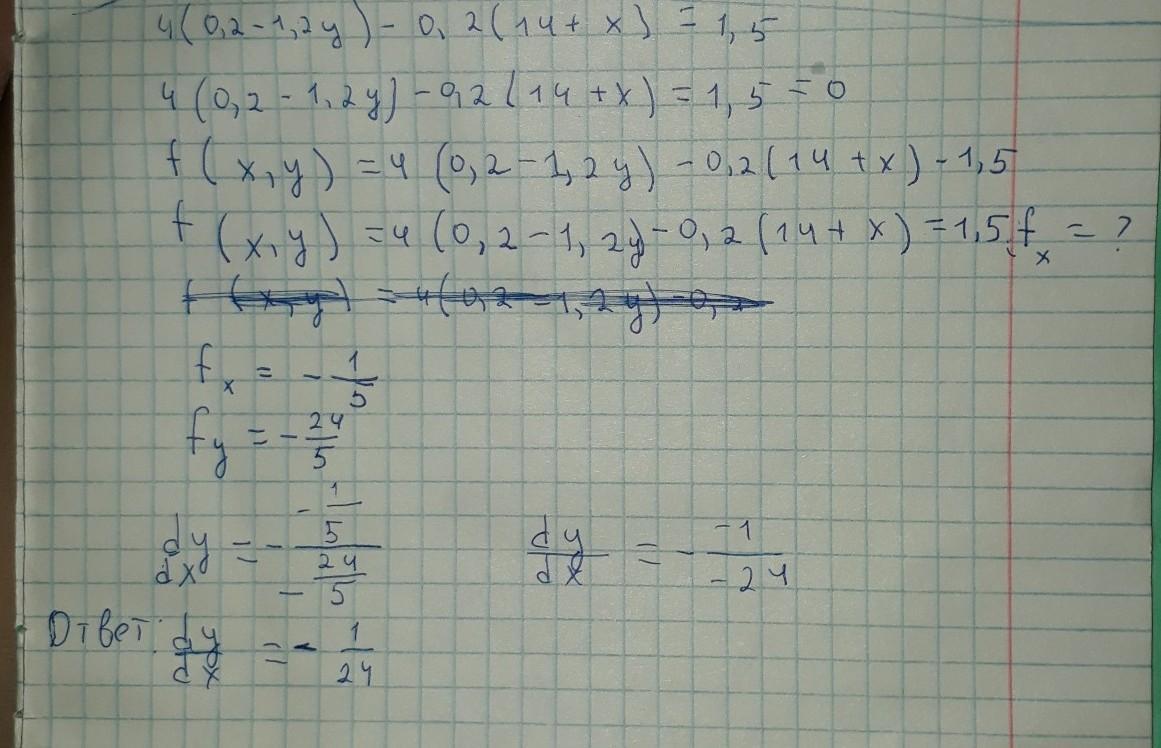 4(0,2-1,2y)-0,2(14+x)=1,5
4(0,2-1,2y)-0,2(14+x)=1,5=0
f(x,y)=4(0,2-1,2y)-0,2(14+x)-1,5
f(x,y)=4(0,2-1,2y)-0,2(14+x)=1,5, f_x=?
f(x,y)=4(0,2-1,2y)-0,2
f_x=-1/5
f_y=-24/5
dy/dx=-(-1/5)/(-24/5) dy/dx=-(-1)/(-24)
Ответ: dy/dx=-1/24